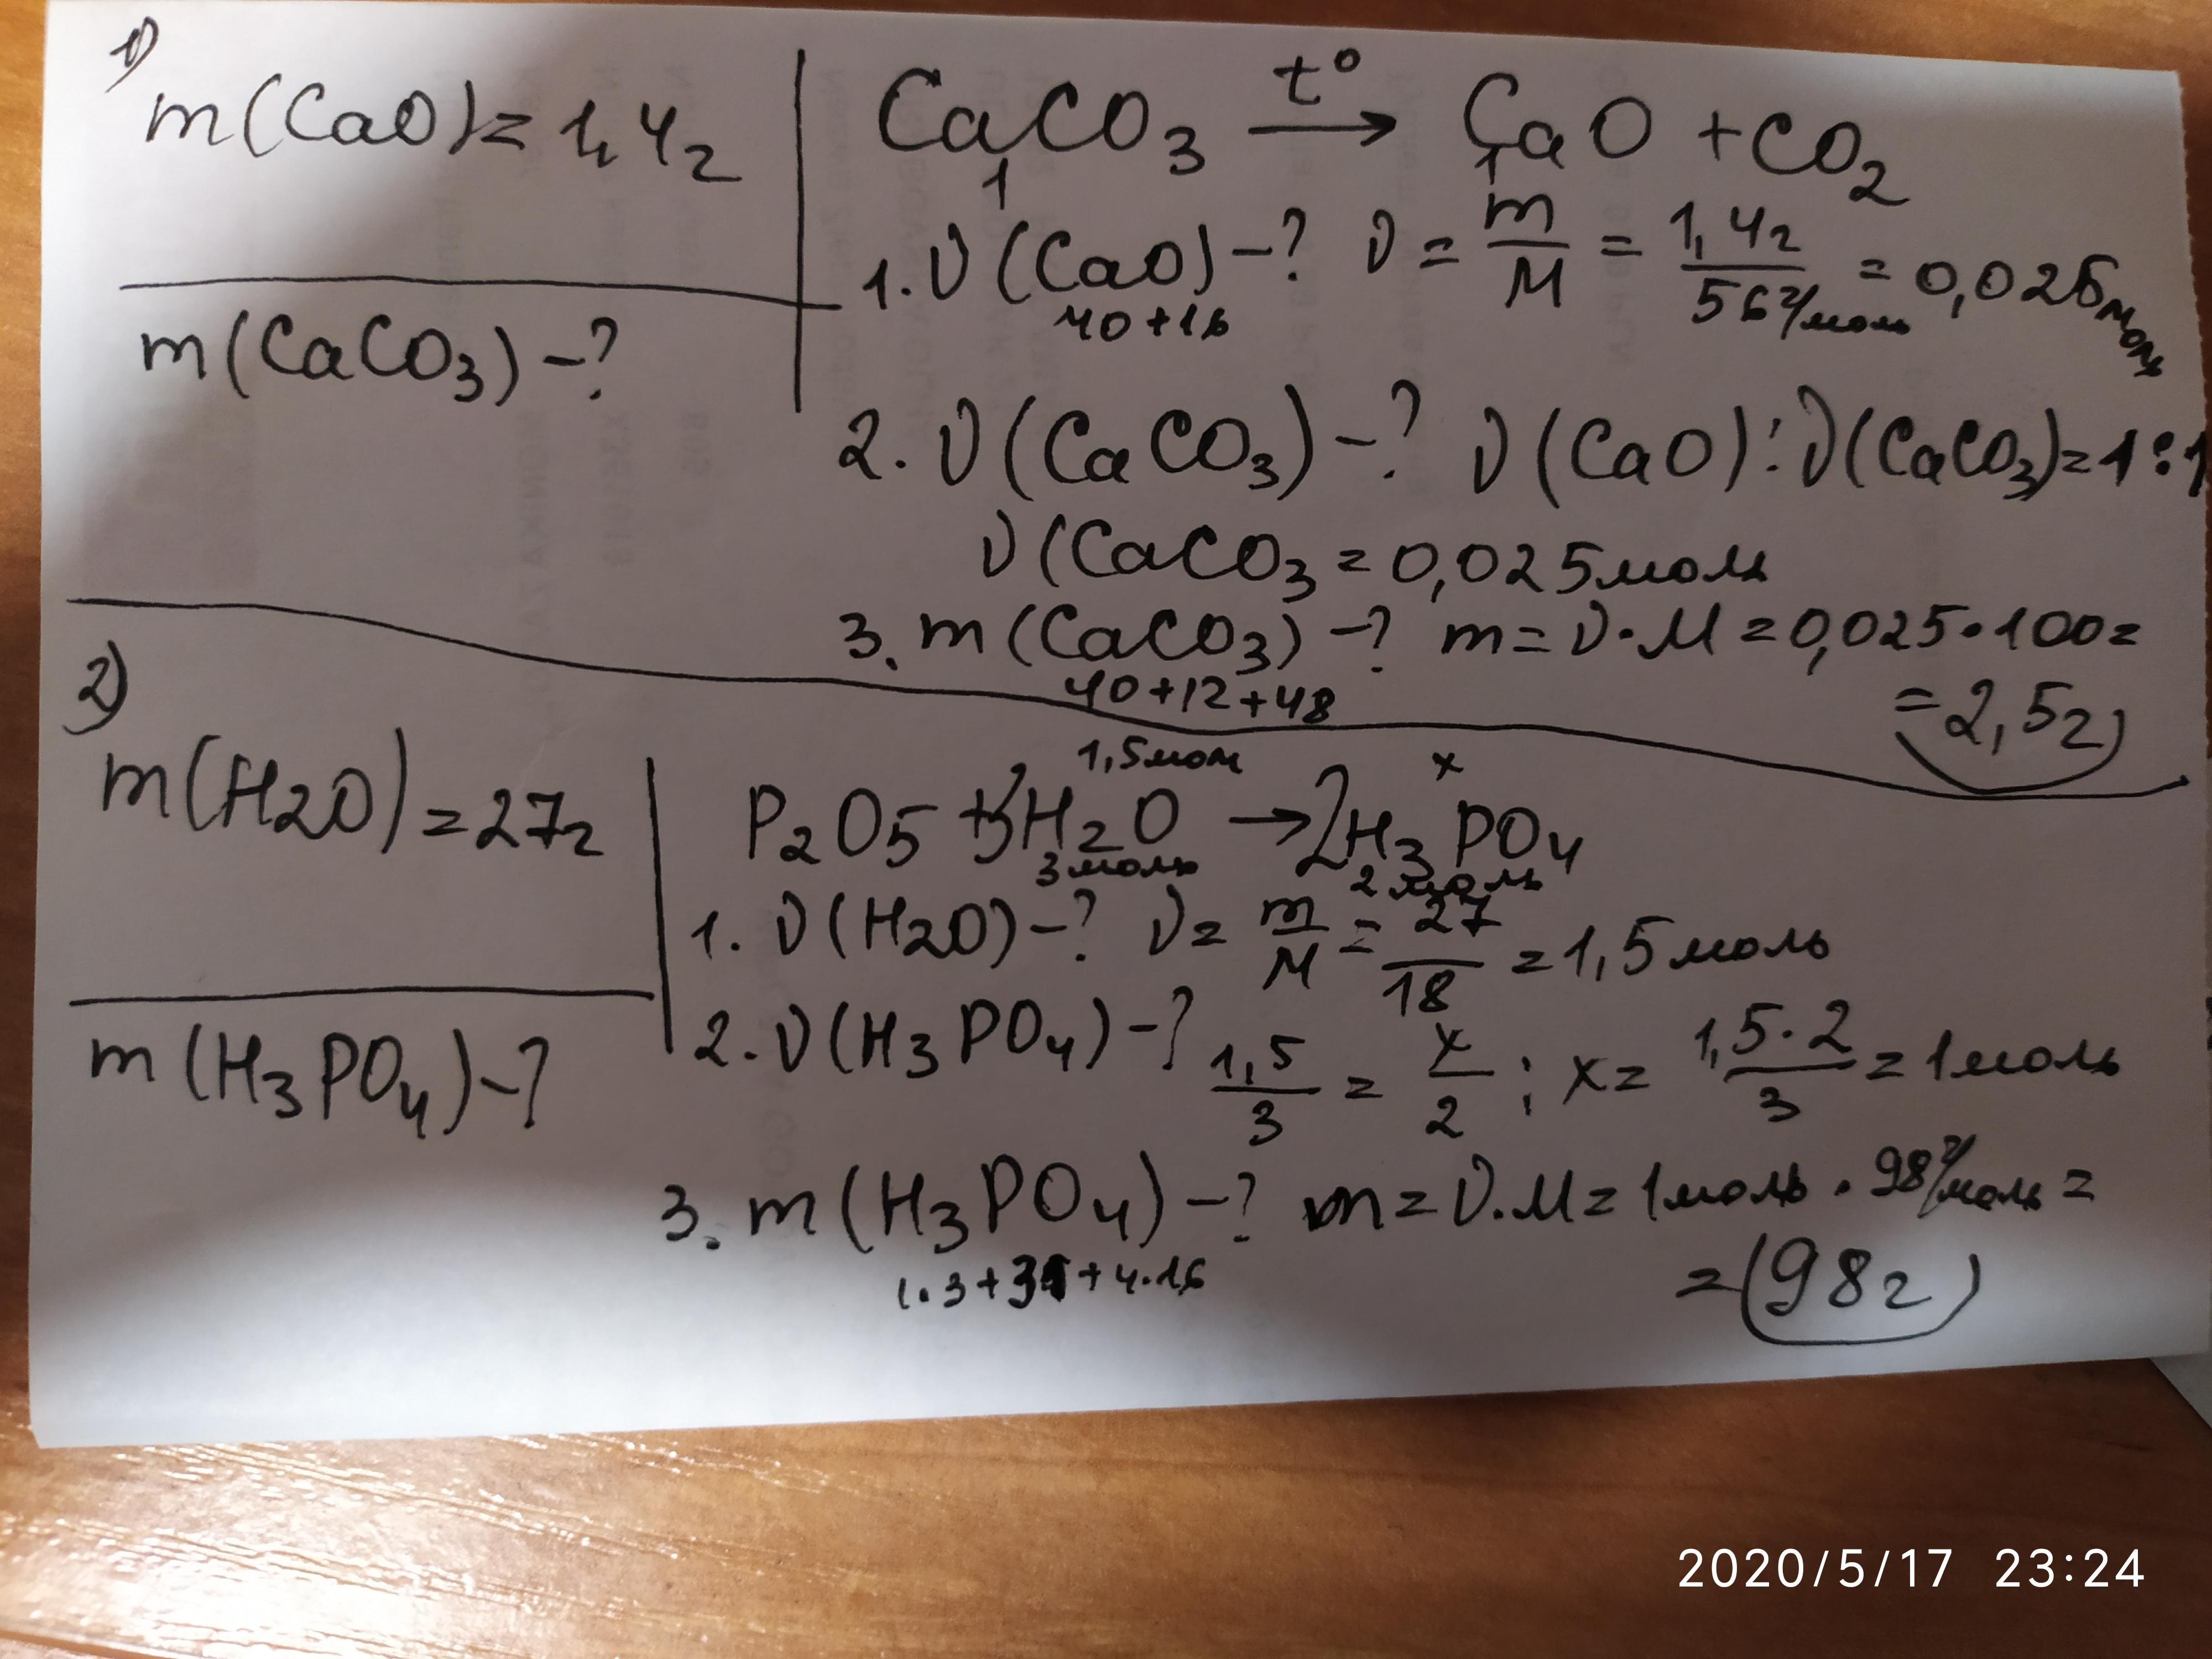 1)
m(CaO)=1,4г
m(CaCO₃)-?
CaCO₃ t°→ CaO + CO₂
1 1
1. ν(CaO)-? ν = m/M = 1,4г/56г/моль = 0,025моль
40+16
2. ν(CaCO₃)-? ν(CaO):ν(CaCO₃)=1:1
ν(CaCO₃=0,025моль
3. m(CaCO₃)-? m=ν·M=0,025·100=
40+12+48
=2,5г
2)
m(H2O)=27г
m(H₃PO₄)-?
1,5мол x
P₂O5+3H₂O → 2H₃PO₄
3моль 2моль
1. ν(H2O)-? ν= m/M = 27/18 =1,5моль
2. ν(H₃PO₄)-? 1,5/3 = x/2 ; x= 1,5·2/3 =1моль
3. m(H₃PO₄)-? m=ν.M=1моль·98г/моль=
1·3+31+4·16
=(98г)
2020/5/17 23:24